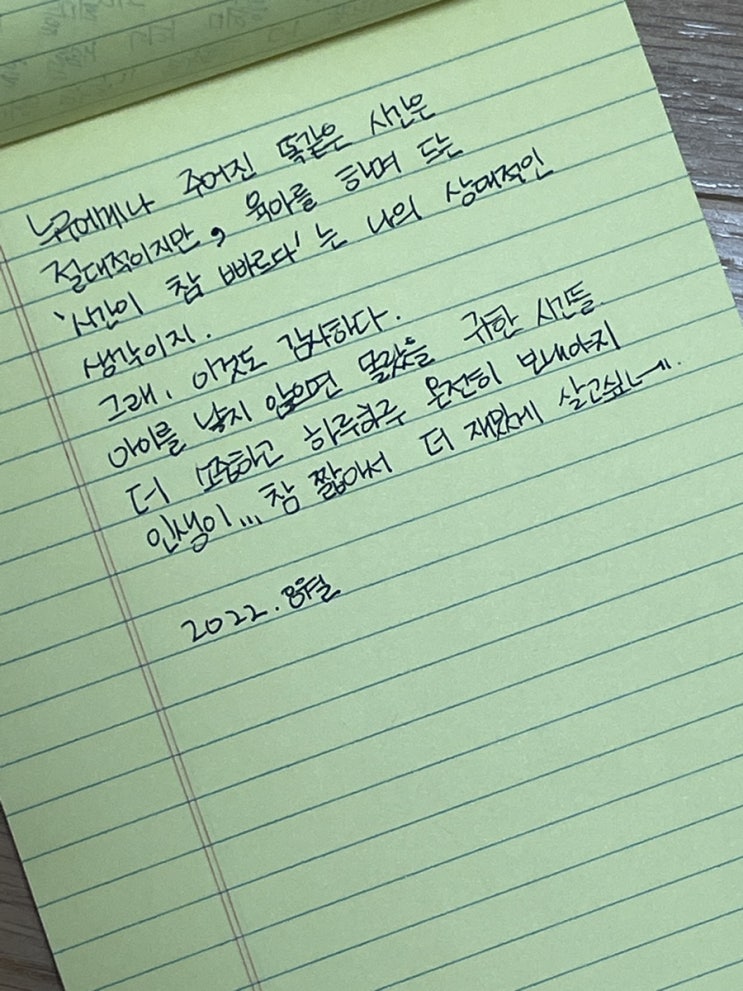 누구에게나 주어진 똑같은 시간은
절대적이지만, 육아를 하며 드는
'시간이 참 빠르다'는 나의 상대적인
생각이지.
그래, 이것도 감사하다.
아이를 낳지 않으면 몰랐을 귀한 시간들.
더 보듬하고 하루하루 온전히 보내야지
인생이... 참 짧아서 더 재밌게 살고싶네.
2022. 8월